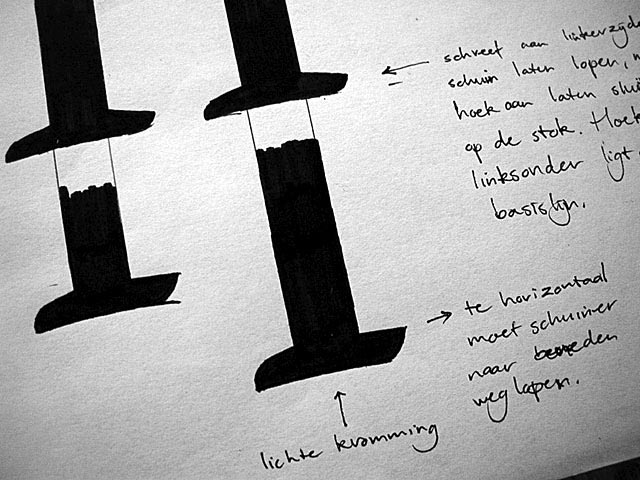 schreef aan linkerzijde
schuin laten lopen,
hoek aan laten
op de stok. Hoek
linksonder ligt
basislijn.
te horizontaal
moet schuiner
naar beneden
weg lopen.
lichte kromming